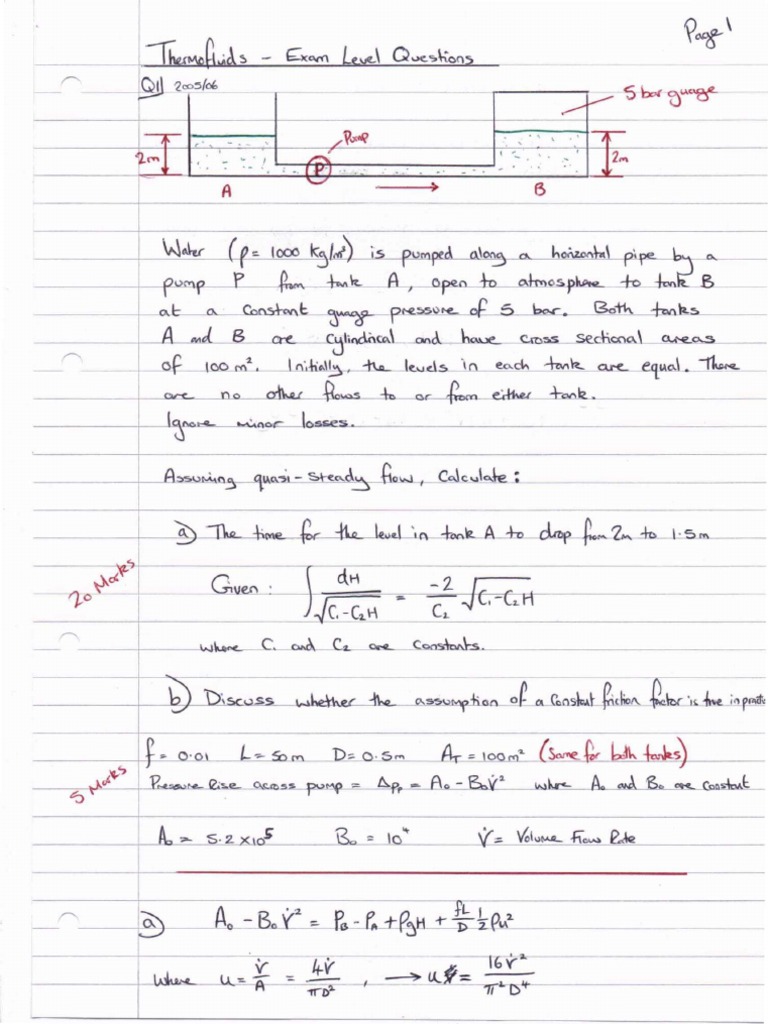 Page 1
Thermofluids - Exam Level Questions
Q1 2005/06
5 bar guage
Pump
2m
P
2m
A
B
Water (ρ = 1000 Kg/m³) is pumped along a horizontal pipe by a
pump P from tank A, open to atmosphere to tank B
at a constant guage pressure of 5 bar. Both tanks
A and B are cylindrical and have cross sectional areas
of 100 m². Initially, the levels in each tank are equal. There
are no other flows to or from either tank.
Ignore minor losses.
Assuming quasi-steady flow, Calculate:
a) The time for the level in tank A to drop from 2m to 1.5m
20 Marks
Given: ∫ dH / √(C₁-C₂H) = -2/C₂ √(C₁-C₂H)
where C₁ and C₂ are constants.
b) Discuss whether the assumption of a constant friction factor is true in practi
f = 0.01 L = 50m D = 0.5m A_T = 100m² (Same for both tanks)
5 Marks
Pressure Rise across pump = Δp_p = A₀ - B₀V̇² where A₀ and B₀ are constant
A₀ = 5.2 x10⁵ B₀ = 10⁴ V̇ = Volume Flow Rate
a) A₀ - B₀V̇² = P_B - P_A + ρgH + fL/D ½ρu²
where u = V̇/A = 4V̇/πD² , → u² = 16V̇²/π²D⁴